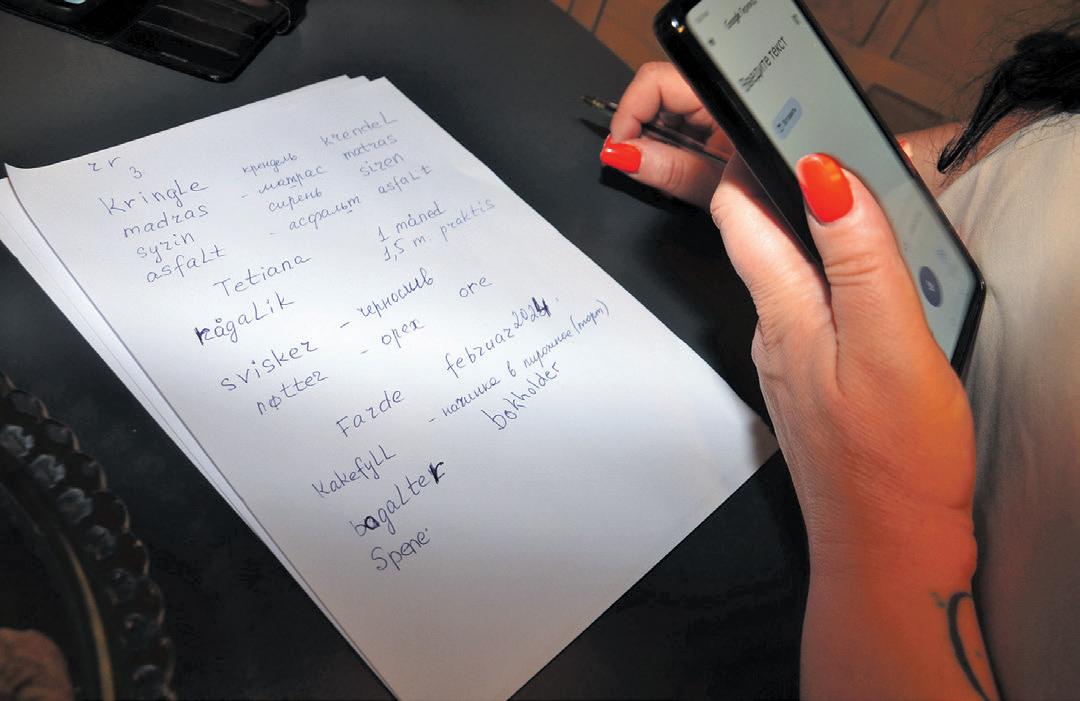 r r 3.
Kringle крендель krendel
madras - матрас matras
syrin сирень siren
asfalt - асфальт asfalt
Tetiana 1 måned
1,5 m. praktis
rågalik
svisker - чернослив
nøtter - орех ore
Farde februar 2024.
Kakefyll - начинка в пирожное (торт)
bogalter bokholder
Spene
Введите текст